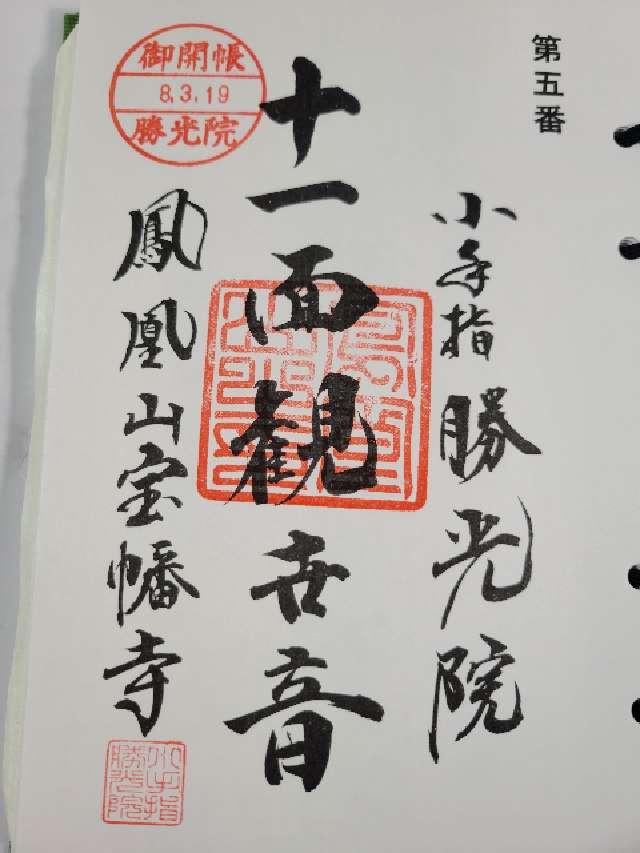 第五番
小手指勝光院
十一面観世音
鳳凰山宝幡寺
御開帳
8.3.19
勝光院
小手指
勝光院